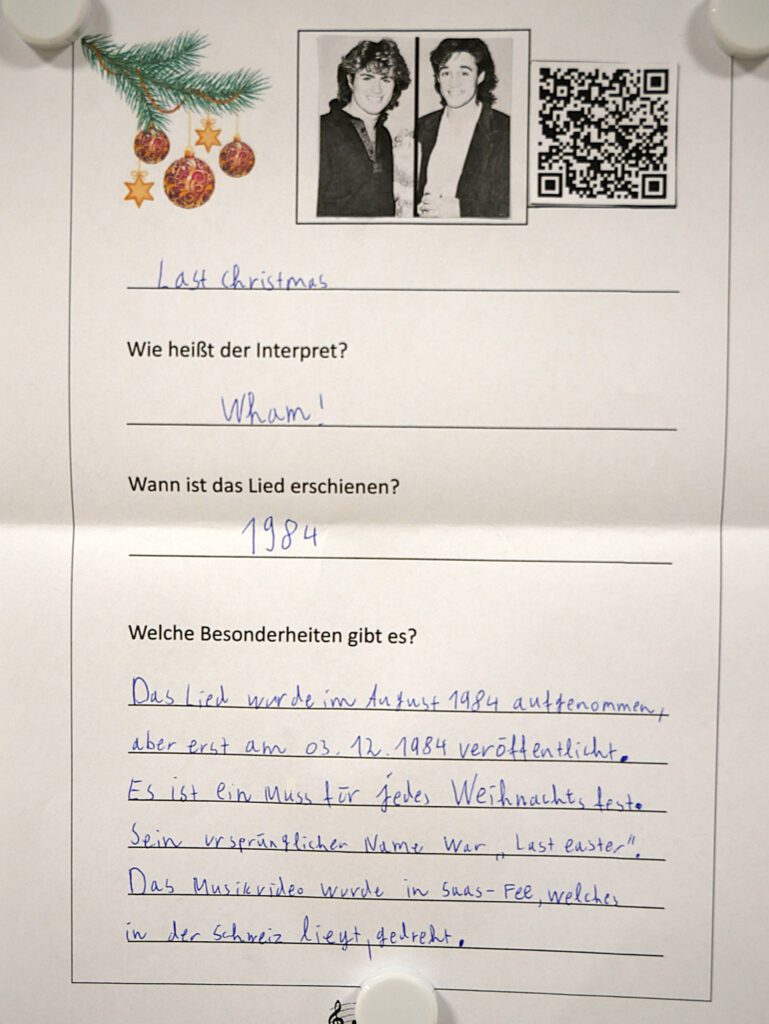 Last Christmas
Wie heißt der Interpret?
Wham!
Wann ist das Lied erschienen?
1984
Welche Besonderheiten gibt es?
Das Lied wurde im August 1984 aufgenommen,
aber erst am 03.12.1984 veröffentlicht.
Es ist ein Muss für jedes Weihnachtsfest.
Sein ursprünglicher Name war „Last easter".
Das Musikvideo wurde in Saas-Fee, welches
in der Schweiz liegt, gedreht.